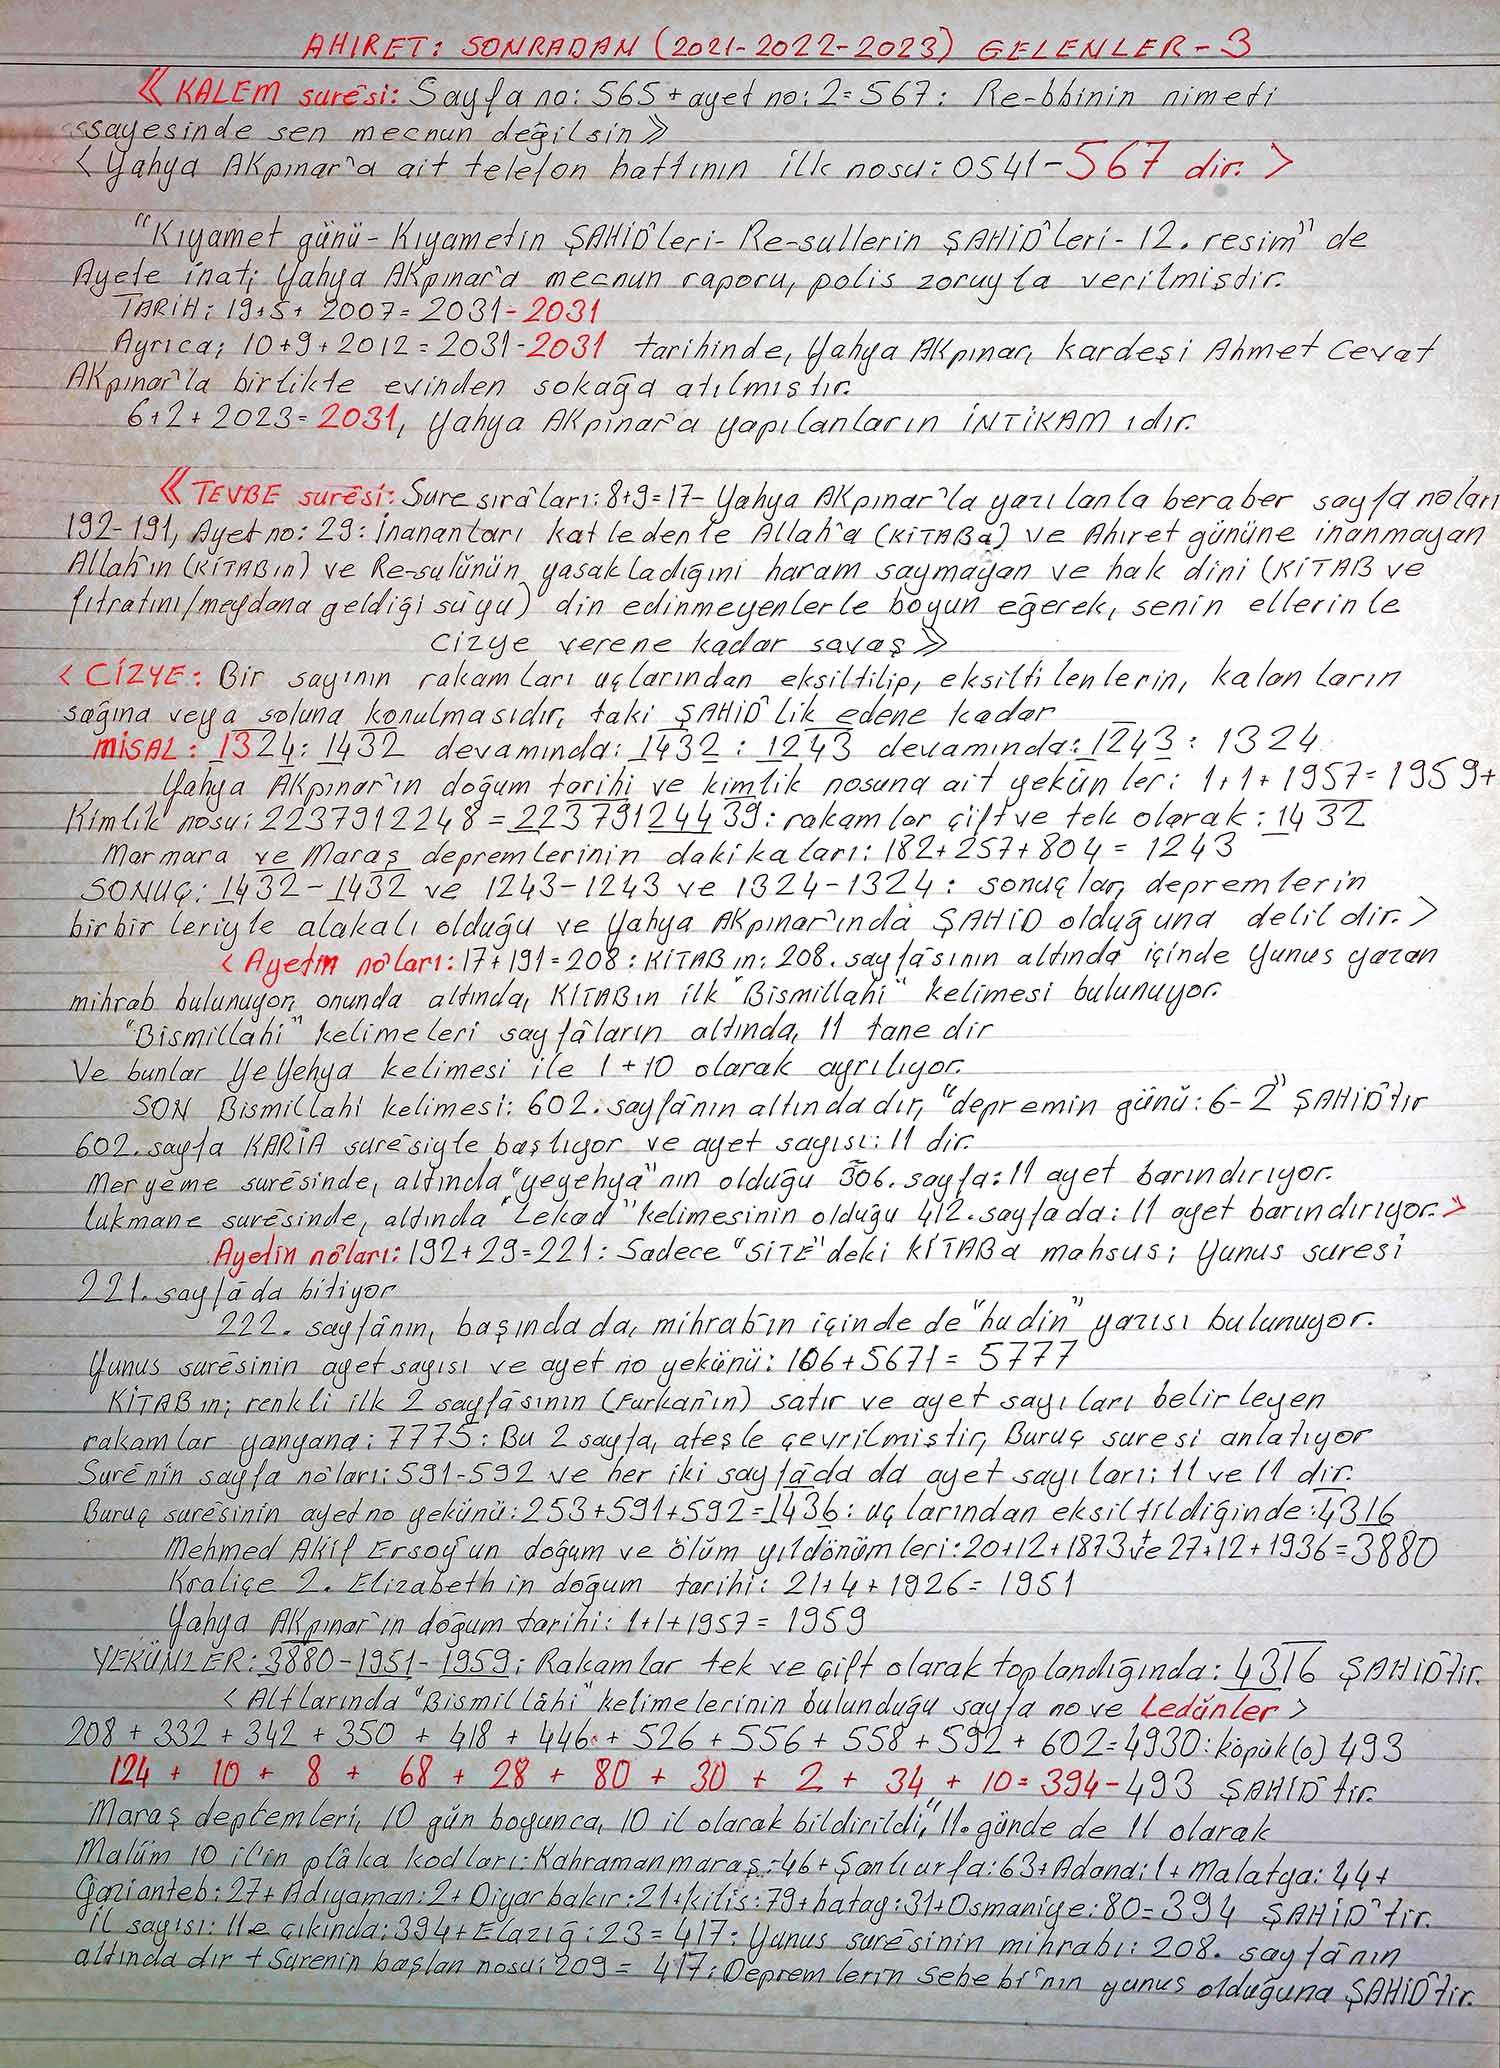 AHIRET: SONRADAN (2021-2022-2023) GELENLER-3
《 KALEM surêsi: Sayfa no: 565 + ayet no: 2 = 567: Re-bbinin nimeti
sayesinde sen mecnun değilsin 》
< Yahya AKpınar'a ait telefon hattının ilk nosu: 0541-567 dir. >
"Kıyamet günü- Kıyametin ŞAHİD'leri- Re-sullerin ŞAHİD'leri- 12. resim" de
Ayete inat; Yahya AKpınar'a mecnun raporu, polis zoruyla verilmişdir.
TARİH: 19+5+ 2007= 2031-2031
Ayrıca; 10+9+2012=2031-2031 tarihinde, Yahya AKpınar, kardeşi Ahmet Cevat
AKpınar'la birlikte evinden sokağa atılmıştır.
6+2+2023=2031, Yahya AKpınar'a yapılanların İNTİKAM ıdır.
《 TEVBE surêsi: Sure sırâları: 8+9=17- Yahya AKpınar'la yazılanla beraber sayfa nôları
192-191, Ayet no: 29: İnananları katledenle Allah'a (KİTABa) ve Ahıret gününe inanmayan
Allah'ın (KİTABın) ve Re-sulünün yasakladığını haram saymayan ve hak dini (KİTAB ve
fıtratını/meydana geldiği sû'yu) din edinmeyenlerle boyun eğerek, senin ellerinle
cizye verene kadar savaş 》
< CİZYE: Bir sayının rakamları uçlarından eksiltilip, eksiltilenlerin, kalanların
sağına veya soluna konulmasıdır, taki ŞAHİD'lik edene kadar
MİSAL: 1324: 1432 devamında: 1432 : 1243 devamında: 1243 : 1324
Yahya AKpınar'ın doğum tarihi ve kimlik nosuna ait yekünler: 1+1+1957=1959+
Kimlik nosu: 2237912248 = 22379124439: rakamlar çift ve tek olarak: 1432
Marmara ve Maraş depremlerinin dakikaları: 182+257+804= 1243
SONUÇ: 1432-1432 ve 1243-1243 ve 1324-1324: sonuçlar, depremlerin
birbirleriyle alakalı olduğu ve Yahya AKpınar'ında ŞAHİD olduğuna delildir. >
< Ayetin nôları: 17+191=208: KİTABın: 208. sayfâsının altında içinde Yunus yazan
mihrab bulunuyor, onunda altında, KİTABın ilk "Bismillahi" kelimesi bulunuyor.
"Bismillahi" kelimeleri sayfâların altında, 11 tane dir
Ve bunlar YeYehya kelimesi ile 1+10 olarak ayrılıyor.
SON Bismillahi kelimesi: 602. sayfânın altında dır, "depremin günü: 6-2" ŞAHİD'tir
602. sayfa KARİA surêsiyle başlıyor ve ayet sayısı: 11 dir.
Meryeme surêsinde, altında "yeyehya"nın olduğu 306. sayfa: 11 ayet barındırıyor.
Lukmane surêsinde, altında "Lekad" kelimesinin olduğu 412. sayfada: 11 ayet barındırıyor. >
Ayetin nôları: 192+29=221: Sadece "SİTE"deki KİTABa mahsus; Yunus suresi
221. sayfâda bitiyor
222. sayfânın, başında da, mihrab'ın içinde de "hudin" yazısı bulunuyor.
Yunus surêsinin ayet sayısı ve ayet no yekünü: 106+5671= 5777
KİTABın; renkli ilk 2 sayfâsının (Furkan'ın) satır ve ayet sayıları belirleyen
rakamlar yanyana: 7775: Bu 2 sayfa, ateşle çevrilmiştir, Buruç suresi anlatıyor
Surênin sayfa nôları: 591-592 ve her iki sayfâda da ayet sayıları: 11 ve 11 dir.
Buruç surêsinin ayet no yekünü: 253+591+592=1436: uçlarından eksiltildiğinde: 4316
Mehmed Akif Ersoy'un doğum ve ölüm yıldönümleri: 20+12+1873 ve + 27+12+1936=3880
Kraliçe 2. Elizabeth'in doğum tarihi: 21+4+1926= 1951
Yahya AKpınar'ın doğum tarihi: 1+1+1957= 1959
YEKÜNLER: 3880-1951-1959; Rakamlar tek ve çift olarak toplandığında: 4316 ŞAHİD'tir.
< Altlarında "Bismillâhi" kelimelerinin bulunduğu sayfa no ve Ledünler >
208 + 332 + 342 + 350 + 418 + 446 + 526 + 556 + 558 + 592 + 602=4930: köpük(0) 493
124 + 10 + 8 + 68 + 28 + 80 + 30 + 2 + 34 + 10= 394-493 ŞAHİD'tir.
Maraş deptemleri, 10 gün boyunca, 10 il olarak bildirildi, 11. günde de 11 olarak
Malüm 10 il'in plâka kodları: Kahramanmaraş: 46+ Şanlıurfa: 63+Adana: 1+ Malatya: 44+
Gazianteb: 27+ Adıyaman: 2+ Diyarbakır: 21+Kilis: 79+hatay: 31+Osmaniye: 80=394 ŞAHİD'tir.
İl sayısı: 11e çıkında: 394+Elazığ: 23=417: Yunus surêsinin mihrabı: 208. sayfânın
altında dır + Surenin başlan nosu: 209= 417: Depremlerin sebebi'nin yunus olduğuna ŞAHİD'tir.